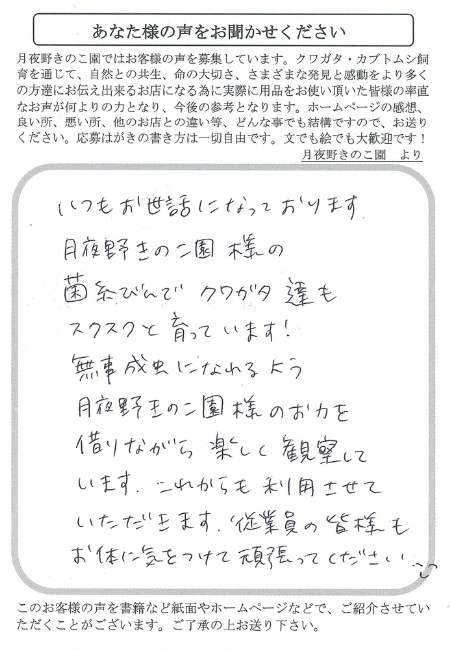 あなた様の声をお聞かせください
月夜野きのこ園ではお客様の声を募集しています。クワガタ・カブトムシ飼
育を通じて、自然との共生、命の大切さ、さまざまな発見と感動をより多く
の方達にお伝え出来るお店になる為に実際に用品をお使い頂いた皆様の率直
なお声が何よりの力となり、今後の参考となります。ホームページの感想、
良い所、悪い所、他のお店との違い等、どんな事でも結構ですので、お送り
ください。応募はがきの書き方は一切自由です。文でも絵でも大歓迎です！
月夜野きのこ園　より
いつもお世話になっております.
月夜野きのこ園様の
菌糸びんで クワガタ達も
スクスクと育っています!
無事成虫になれるよう
月夜野きのこ園様のお力を
借りながら 楽しく観察して
います. これからも利用させて
いただきます. 従業員の皆様も
お体に気をつけて頑張ってください
このお客様の声を書籍など紙面やホームページなどで、ご紹介させてい
ただくことがございます。ご了承の上お送り下さい。